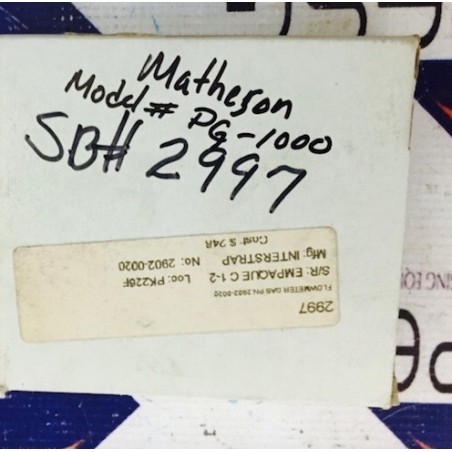 Matheson
Model # PG-1000
SB# 2997
2997
FLOWMETER GAS PN.2902-0020
S/R: EMPAQUE C 1-2 Loc: PK226F
Mfg: INTERSTRAP No: 2902-0020
Cost: $ 248